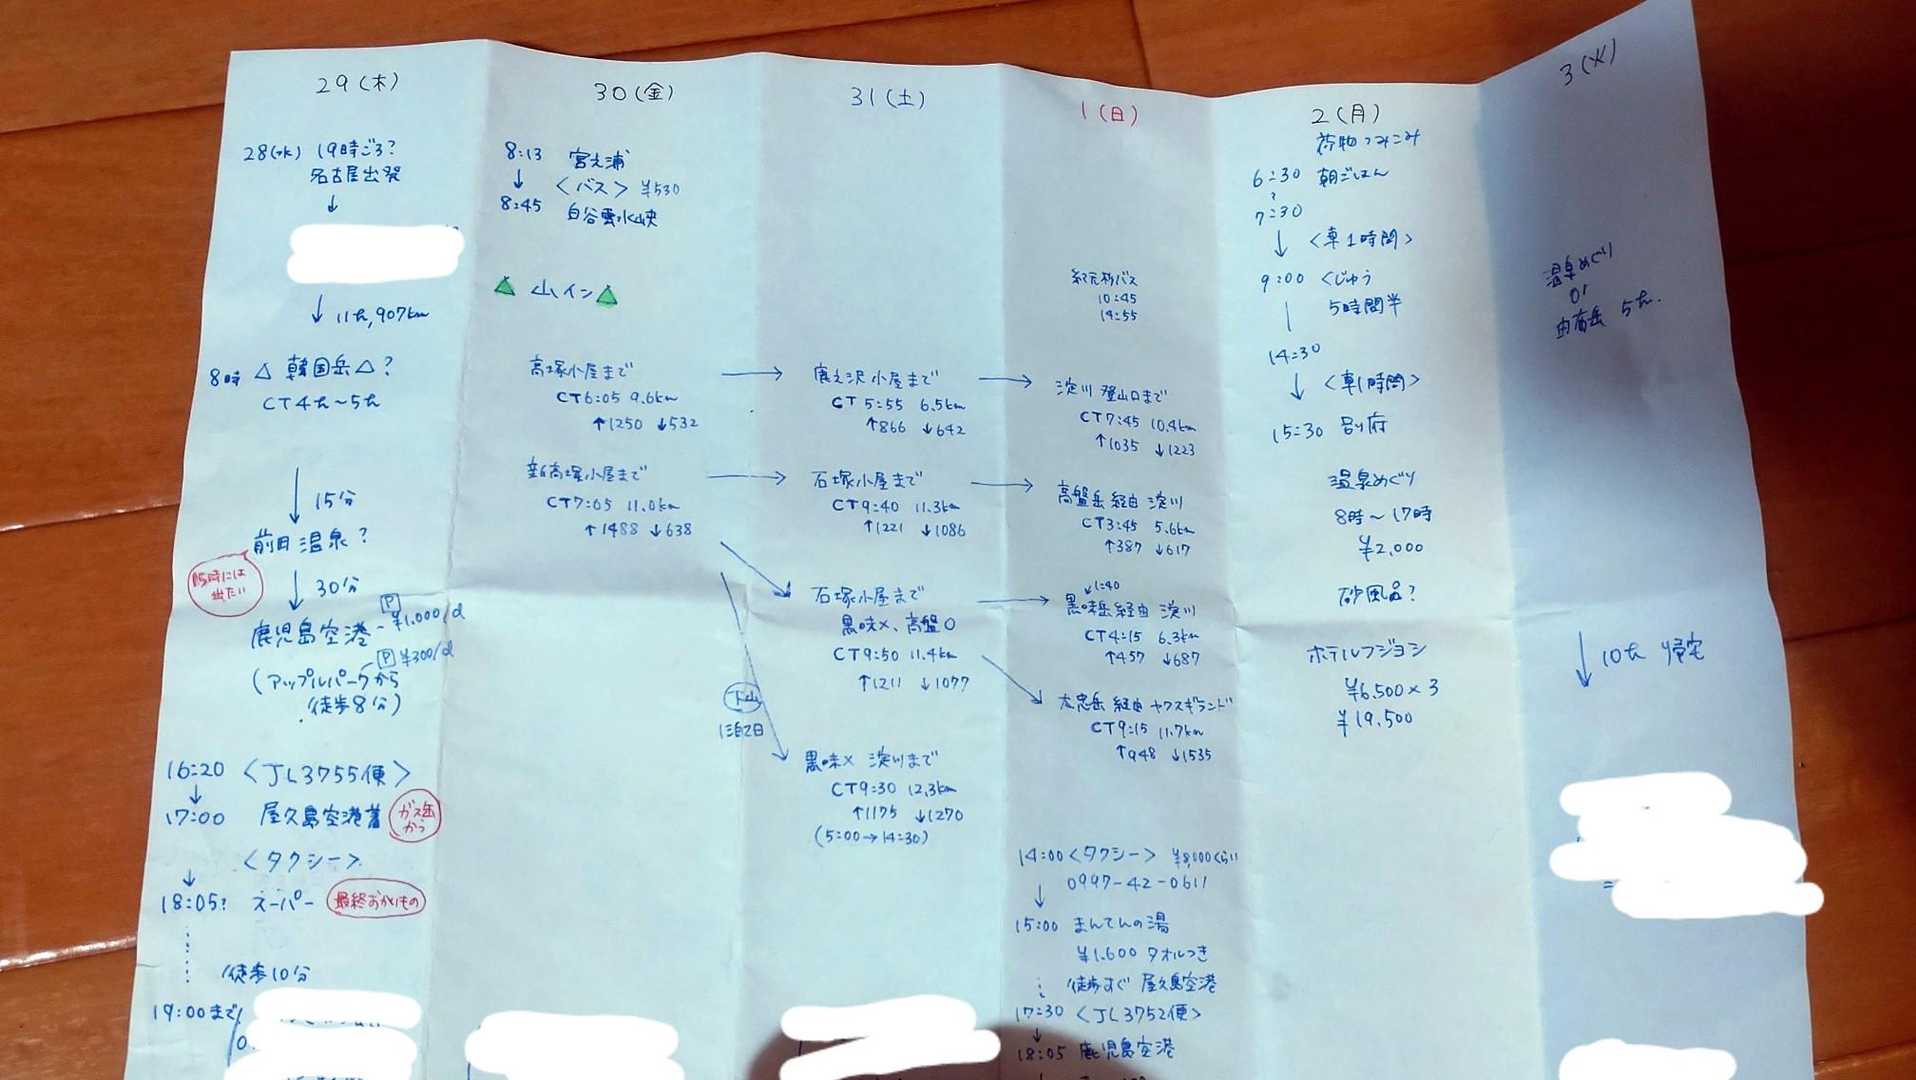 29(木)
28(水) 19時ごろ?
名古屋出発
↓
↓ 11h, 907km
8時 △ 韓国岳△?
CT4h~5h
↓ 15分
前田温泉?
15時には
出たい
↓ 30分
鹿児島空港 - P ¥1,000/d
(アップルパークから P ¥300/d
徒歩8分)
16:20 <JL3755便>
↓
17:00 屋久島空港着
ガス缶
かう
<タクシー>
↓
18:05? スーパー 最終おかいもの
徒歩10分
19:00まで
30(金)
8:13 宮之浦
↓ <バス> ¥530
8:45 白谷雲水峡
△ 山イン△
高塚小屋まで →
CT6:05 9.6km
↑1250 ↓532
新高塚小屋まで →
CT7:05 11.0km
↑1488 ↓638
下山
1泊2日
31(土)
鹿之沢小屋まで →
CT5:55 6.5km
↑866 ↓642
石塚小屋まで →
CT9:40 11.3km
↑1221 ↓1086
石塚小屋まで →
黒味×、高盤○
CT9:50 11.4km
↑1211 ↓1077
黒味× 淀川まで
CT9:30 12.3km
↑1175 ↓1270
(5:00→14:30)
1(日)
紀元杉バス
10:45
14:55
淀川登山口まで
CT7:45 10.4km
↑1035 ↓1223
高盤岳経由 淀川
CT3:45 5.6km
↑387 ↓617
↓1:40
黒味岳経由 淀川
CT4:15 6.3km
↑457 ↓687
太忠岳経由 ヤクスギランド
CT9:15 11.7km
↑948 ↓1535
14:00<タクシー> ¥8,000くらい
↓ 0997-42-0611
15:00 まんてんの湯
¥1,600 タオルつき
徒歩すぐ 屋久島空港
17:30 <JL3752便>
↓
18:05 鹿児島空港
2(月)
荷物つみこみ
6:30 朝ごはん
7:30
↓ <車1時間>
9:00 くじゅう
| 5時間半
14:30
↓ <車1時間>
15:30 別府
温泉めぐり
8時~17時
¥2,000
砂風呂?
ホテルフジヨシ
¥6,500×3
¥19,500
3(火)
温泉めぐり
or
由布岳 5h.
↓ 10h 帰宅